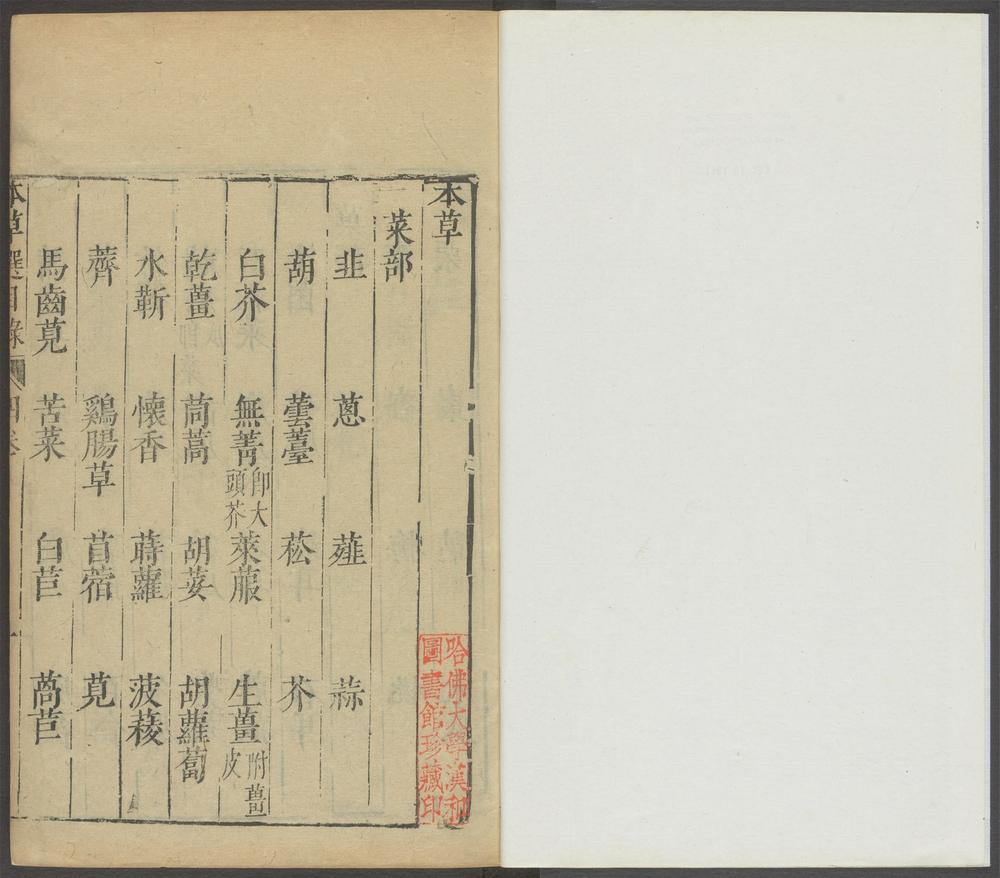 本草
菜部
韭 蔥 薤 蒜
葫 蕓薹 菘 芥
白芥 蕪菁即大頭芥 萊菔 生薑附薑皮
乾薑 茼蒿 胡荽 胡蘿蔔
水蘄 懷香 蒔蘿 菠薐
薺 鷄腸草 苜蓿 莧
馬齒莧 苦菜 白苣 萵苣
本草選目錄 四卷 一
哈佛大學漢和
圖書館珍藏印